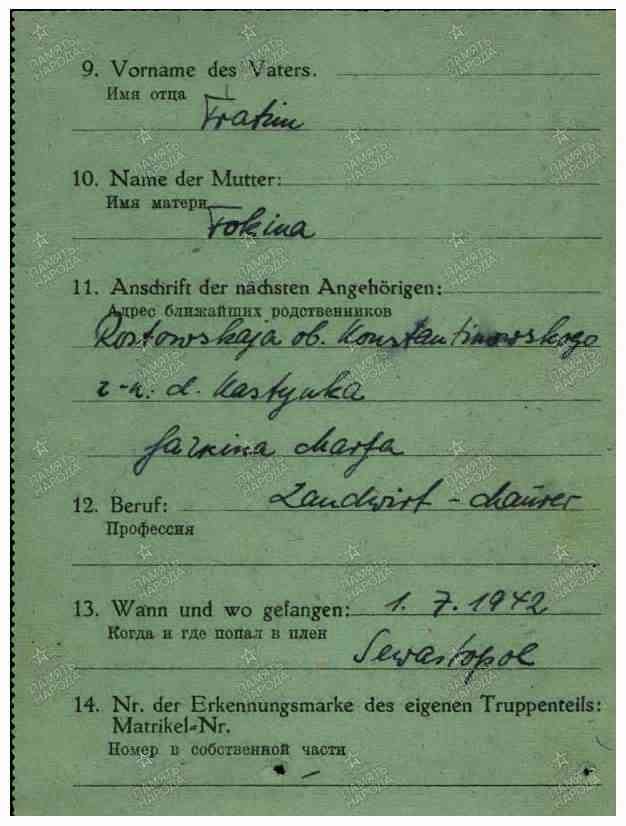 9. Vorname des Vaters.
Имя отца
Tratim
10. Name der Mutter:
Имя матери
Fokina
11. Anschrift der nächsten Angehörigen:
Адрес ближайших родственников
Rostowskaja ob. Konstantinowskogo
r-n: d. Kastynka
Marfa
12. Beruf: Landwirt - Maurer
Профессия
13. Wann und wo gefangen: 1. 7. 1942
Когда и где попал в плен
Sewastopol
14. Nr. der Erkennungsmarke des eigenen Truppenteils:
Matrikel-Nr.
Номер в собственной части
–
ПАМЯТЬ НАРОДА